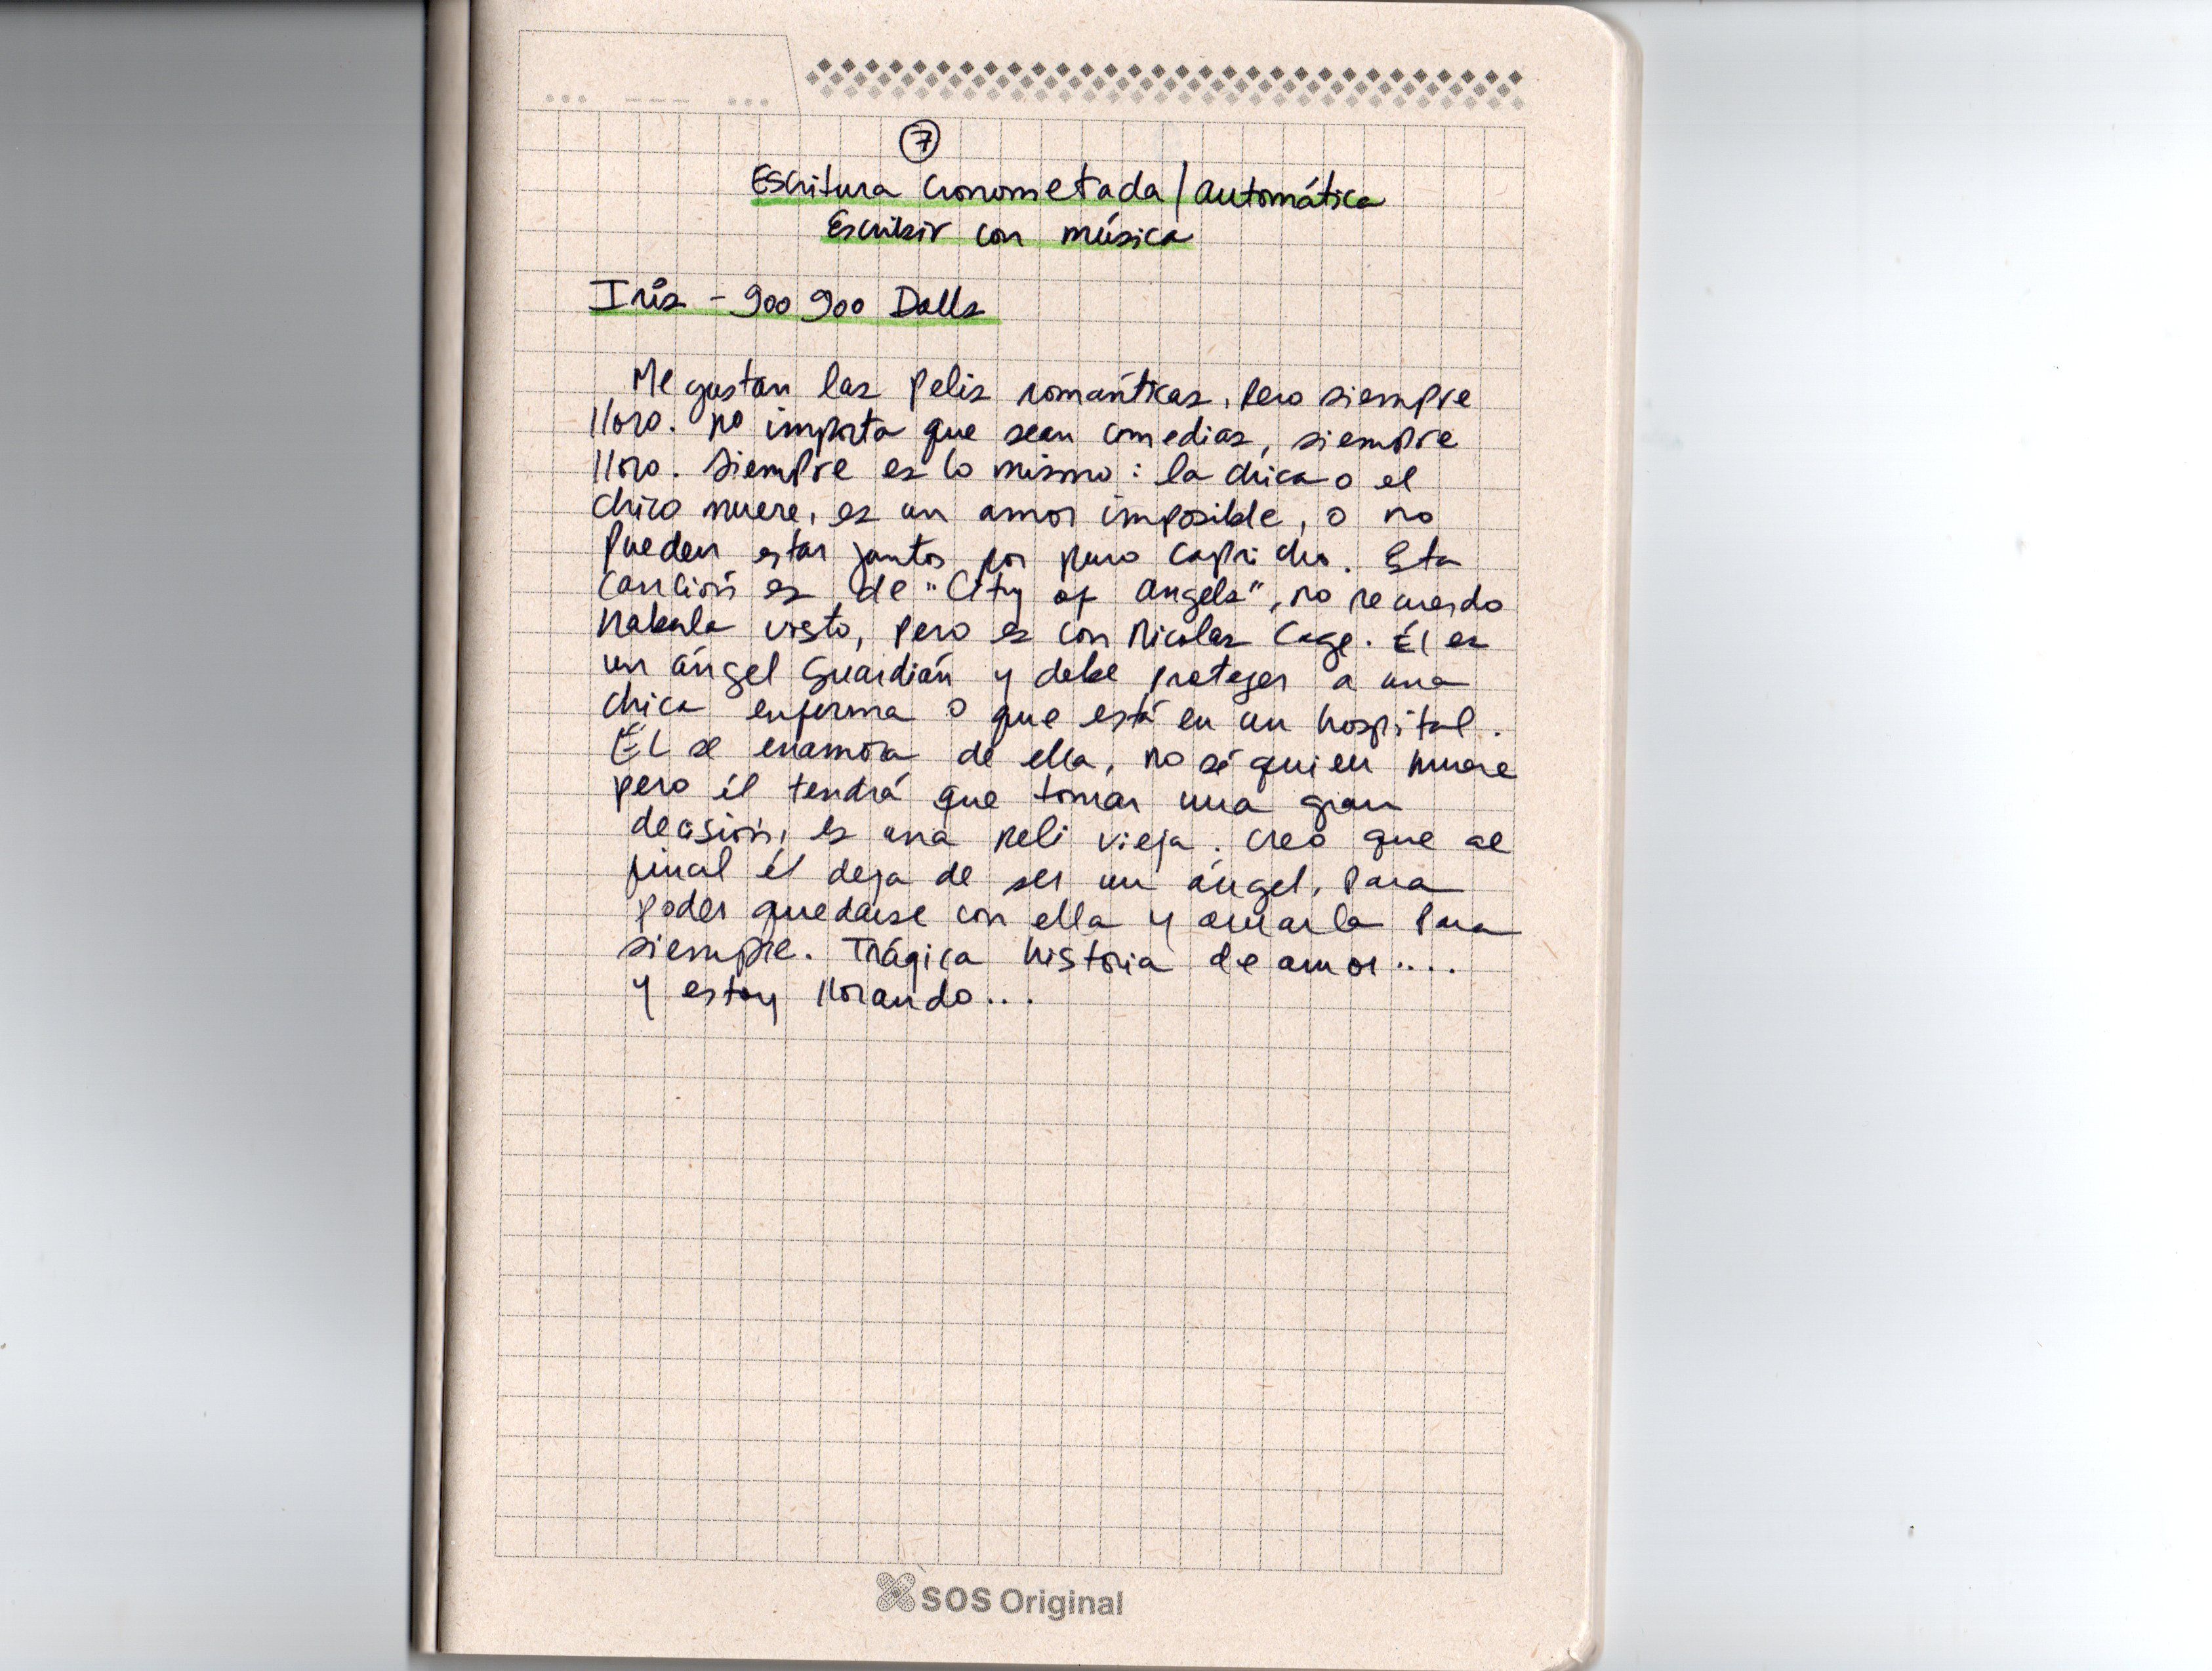 7
Escritura cronometada/automática
Escribir con música
Iris - goo goo Dolls
Me gustan las pelis románticas, pero siempre
lloro. no importa que sean comedias, siempre
lloro. Siempre es lo mismo: la chica o el
chico muere, es un amor imposible, o no
pueden estar juntos por puro capricho. Esta
canción es de "City of Angels", no recuerdo
haberla visto, pero es con Nicolas Cage. Él es
un ángel guardián y debe proteger a una
chica enferma o que está en un hospital.
Él se enamora de ella, no sé quien muere
pero él tendrá que tomar una gran
decisión, es una peli vieja. Creo que al
final él deja de ser un ángel, para
poder quedarse con ella y amarla para
siempre. Trágica historia de amor....
y estoy llorando...
SOS Original